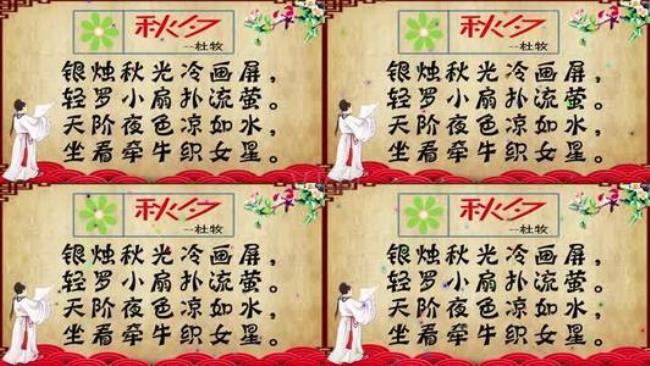 秋夕
--杜牧
银烛秋光冷画屏，
轻罗小扇扑流萤。
天阶夜色凉如水，
坐看牵牛织女星。
秋夕
--杜牧
银烛秋光冷画屏，
轻罗小扇扑流萤。
天阶夜色凉如水，
坐看牵牛织女星。
秋夕
--杜牧
银烛秋光冷画屏，
轻罗小扇扑流萤。
天阶夜色凉如水，
坐看牵牛织女星。
秋夕
--杜牧
银烛秋光冷画屏，
轻罗小扇扑流萤。
天阶夜色凉如水，
坐看牵牛织女星。